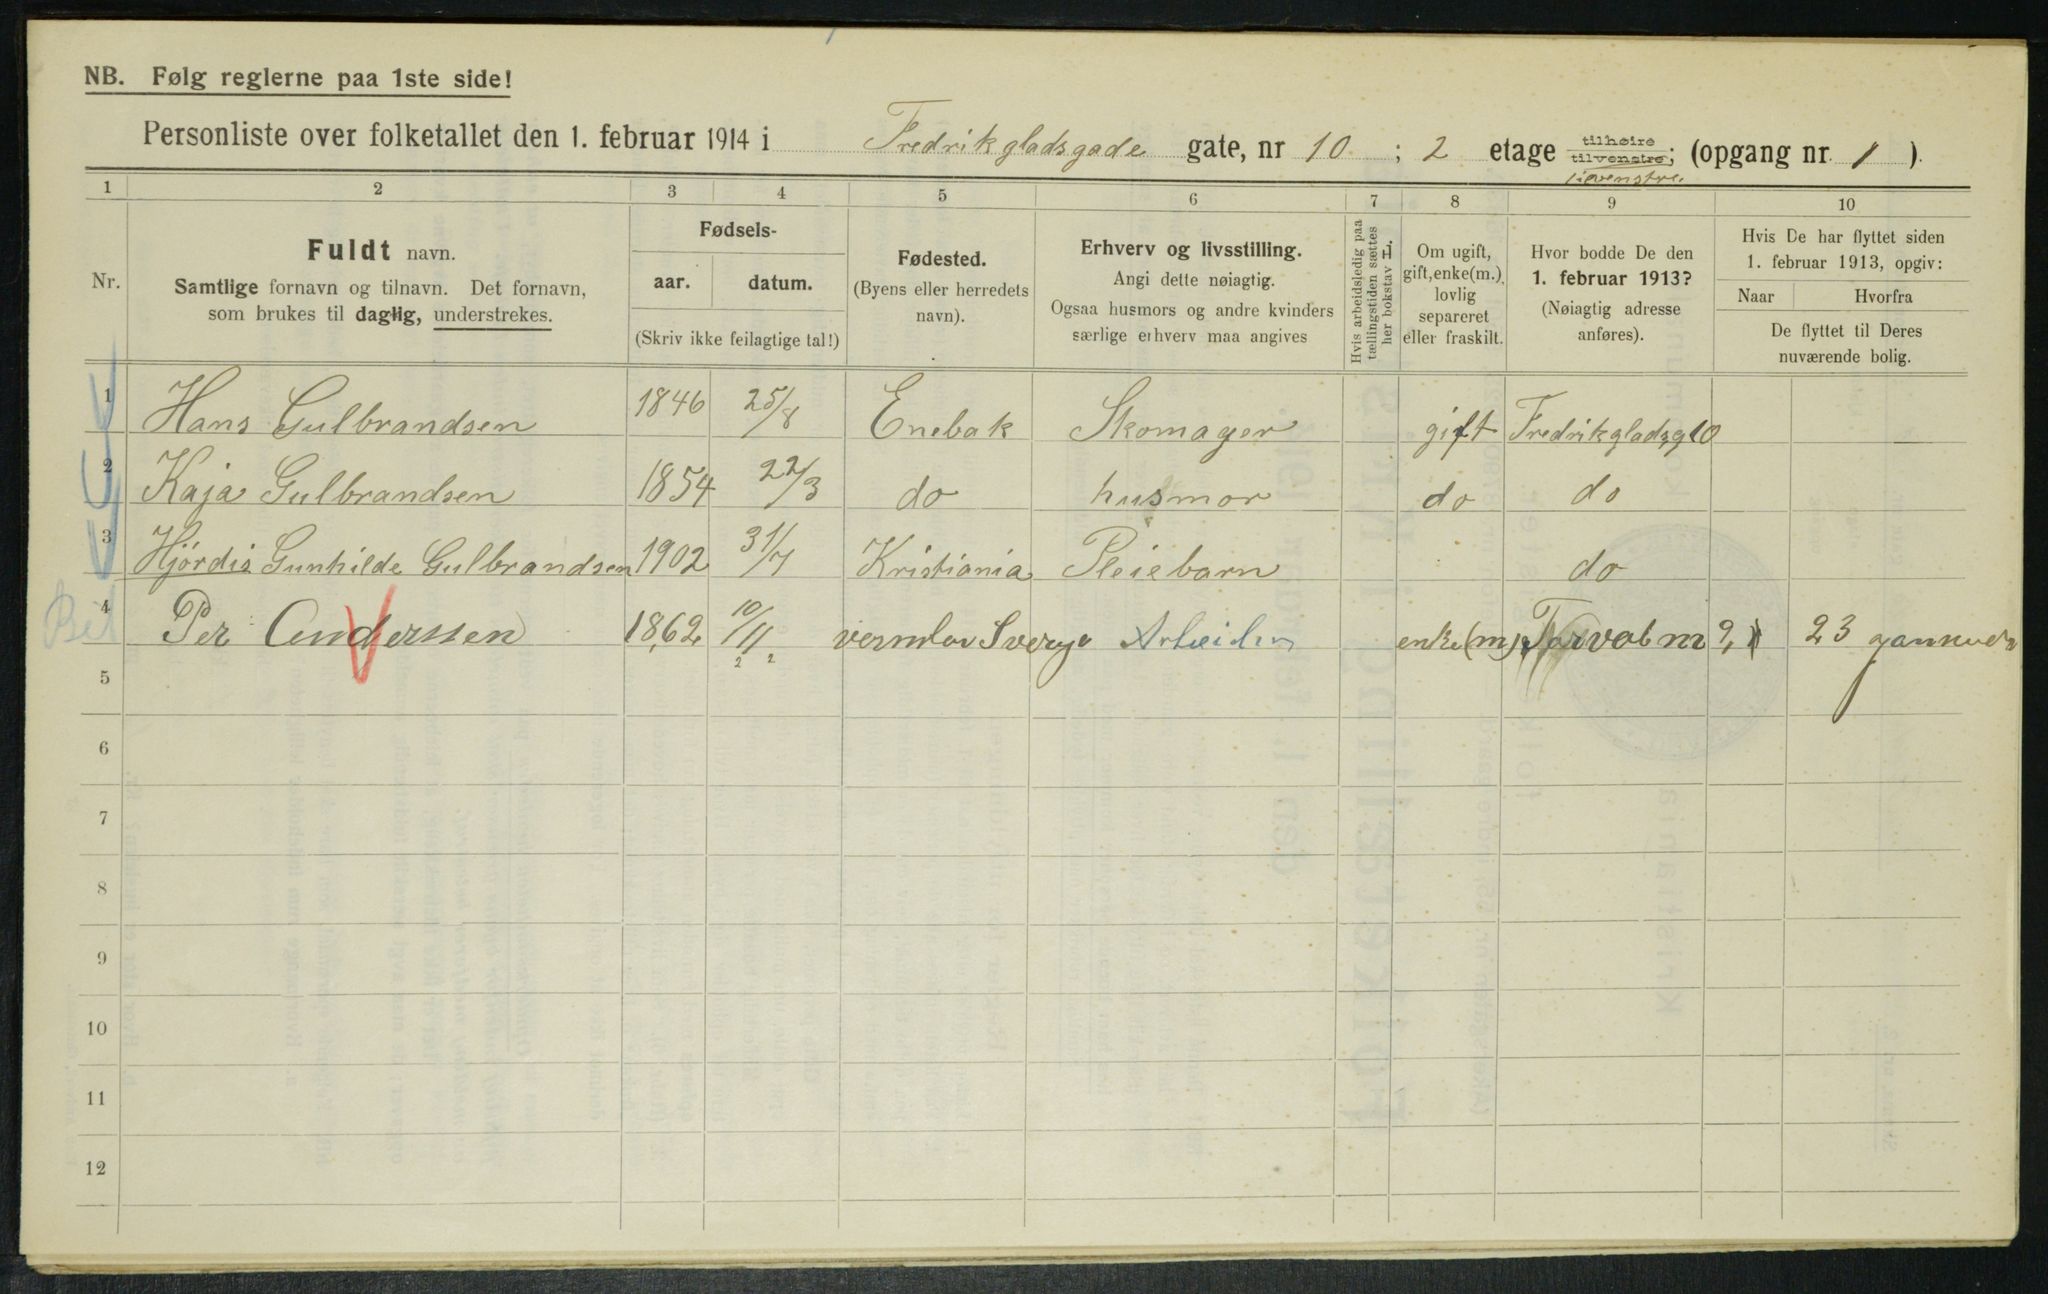 NB. Følg reglerne paa 1ste side!
Personliste over folketallet den 1. februar 1914 i Fredrikgladsgade gate, nr 10 ; 2 etage tilhøire tilvenstre; (opgang nr. 1 ).
tilvenstre.
1 2 3 4 5 6 7 8 9 10
Nr.
Fuldt navn.
Samtlige fornavn og tilnavn. Det fornavn,
som brukes til daglig, understrekes.
Fødsels-
aar. datum.
(Skriv ikke feilagtige tal!)
Fødested.
(Byens eller herredets
navn).
Erhverv og livsstilling.
Angi dette nøiagtig.
Ogsaa husmors og andre kvinders
særlige erhverv maa angives
Hvis arbeidsledig paa
tællingstiden sættes
her bokstav L.
Om ugift,
gift, enke(m.),
lovlig
separeret
eller fraskilt.
Hvor bodde De den
1. februar 1913?
(Nøiagtig adresse
anføres).
Hvis De har flyttet siden
1. februar 1913, opgiv:
Naar Hvorfra
De flyttet til Deres
nuværende bolig.
1 Hans Gulbrandsen 1846 25/8 Enebak Skomager gift Fredrikgladsg10
2 Kaja Gulbrandsen 1854 22/3 do husmor do do
3 Hjørdis Gunhilde Gulbrandsen 1902 31/7 Kristiania Pleiebarn do
4 Per Anderssen 1862 10/11 Sverge Arbeider enke(m) 23
5
6
7
8
9
10
11
12